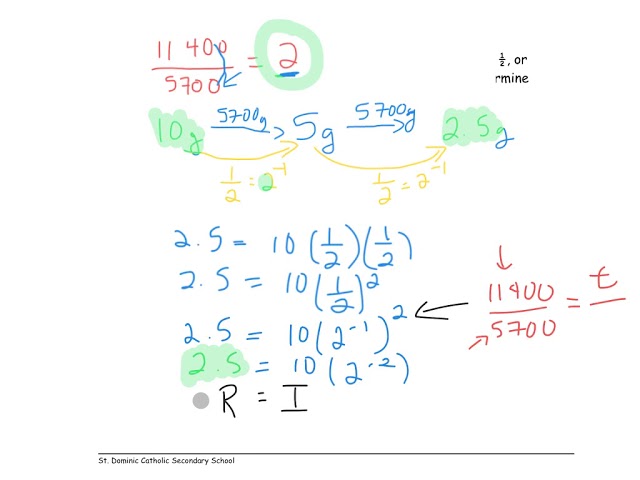 11 400
5700
= 2
1/2, or
rmine
10g 5700g → 5g 5700g → 2.5g
1/2 = 2^-1 1/2 = 2^-1
2.5 = 10(1/2)(1/2)
2.5 = 10(1/2)^2
2.5 = 10(2^-1)^2 ←
2.5 = 10(2^-2)
11400/5700 = t
R = I
St. Dominic Catholic Secondary School